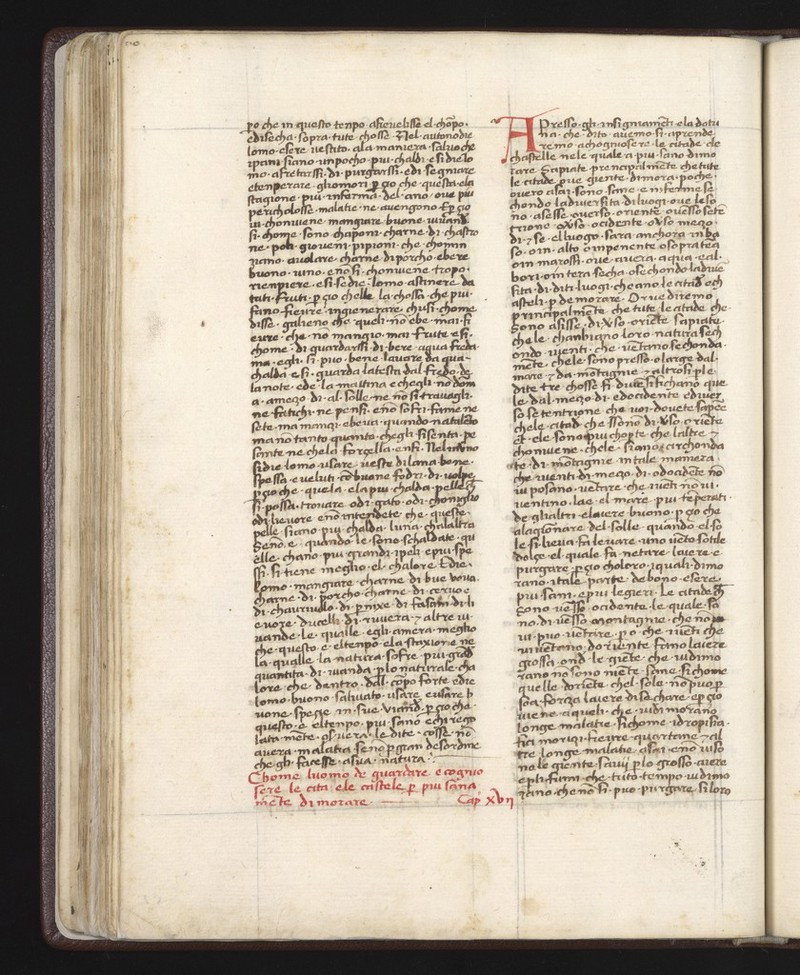 po che in questo tenpo afievelisse el chorpo.
edisecha sopra tute chosse. Nel autonodie
lomo esere vestito ala maniera salvo che
ipani siano un pocho piu chaldi esi die lo
mo afretarssi di purgarssi edi segniare
etenperare gliomori p cio che questa ela
stagione piu inferma del ano ove piu
pericholosse malatie ne avengono Ep cio
si chonviene mangiare buone vivande
si chome sono chaponi charne di chastro
ne poli gioveni pipioni che chomin
ziano avolare charne di porcho ebere
buono vino eno si chonviene tropo
rienpiere esi se die lomo astinere da
tuti fruti p cio chelle la chossa che piu
fano fievre ingienerare chusi chome
disse galieno che queli no ebe mai fi
evre che no mangio mai frute esi
chome di guardarssi di bere aqua freda
ma egli si puo bene lavare da qua
chalda esi guarda latesta dal fredo de
la note ede la matina echegli no dom
a amezo di al solle ne no si travagli
ne fatichi ne pensi eno sofri fame ne
sete ma mangi ebeva quando natalto
ma no tanto quanto chegli si senta pe
sante ne chela forcella enfi Nel inverno
si die lomo usare veste di lana bene
spessa e veluti co buone fodri di volpe
p cio che quela ela piu chalda pelle che
si possa trovare odi gato odi choniglio
odi lievore eno intendete che queste
pelle siano piu chalda luna chalaltra
Seno e quando le sono schaldate qu
elle chano piu grandi ipeli epiu spe
ssi si tiene meglio el chalore Edie
lomo mangiare charne di bue vova
charne di porcho charne di cervo e
di chavriuolo di pnixe di fasani di li
evore ducelli di rivera 7 altre vi
vande le qualle egli amera meglio
che questo e eltenpo ela staxione ne
la qualle la natura sofre piu grad
quantita di vianda plo naturale cha
lore che dentro dal copo forte edie
lomo buono salvato usare e usare b
uone spezie in sue vivand p cio che
questo e eltenpo piu sano echi rego
lata mete oservera le dite cosse no
avera malatia seno p gran desordine
che gli facesse asua natura
Chome luomo de guardare e cognio
sere le cita ele castele p piu sana
mete di morare Cap xvii
APresso gli insigniamenti ela dotri
na che dito avemo si aprende
remo achognioscere le citade ele
chastelle nele quale a piu sano dimo
rare Sapiate principalmete che tute
le citade ove giente dimora poche
overo asai sono sane e inferme se
chondo ladiversita di luogi ove le so
no asesse overso oriente overso sete
trione oVso ocidente oVso mezo
di 7 se el luogo sara anchora in ba
so oin alto oinpenente osopra tea
oin marossi ove avera aqua eal
bori oin tera secha ose chondo ladive
sita di diti luogi che ano le citad ech
asteli p de morare Or ve diremo
principalmete che tute le citade che
sono asisse diVso oriete sapiate
che le chanbiano loro natura sech
ondo iventi che vietano sechonda
mete chele sono presso o large dal
mare 7 da motagnie 7 altrosi p le
dite tre chosse si diversifichano que
le dal mezo di edocidente ediver
so setentrione che voi dovete sapere
chele citad che ssono diVso oriete
Et ele sono piu chopte che laltre 7
chonviene chele siano circhonda
te di motagnie in tale maniera
che iventi di mezo di odocidete no
vi posano vetrare che veti no vi
ventino lae el mare piu teperati
de gli altri elaere buono p cio che
alaqionare del solle quando el so
le si lieva fa levare uno veto sotile
dolce el quale fa netare laere e
purgare p cio choloro iquali dimo
rano itale parte debono esere
piu sani epiu legieri Le citade ch
sono vesso ocidente le quale sa
no di vesso montagnie che no
vi puo vetrare p o che iveti che
vi vietano doriente fano laere
grossa ond le giete che vi dimo
rano no sono mete sane si chome
quelle doriete chel sole no puo p
sua forza laere disechare ep cio
viene aqueli che vi dimorano
longe malatie si chome idropissia
fici morixi fievre quartane 7 al
tre longe malatie asai eno viso
ne le giente savii p lo grosso aiere
epli fumi che tuto tempo vi dimo
rano che no si puo purgare si loro